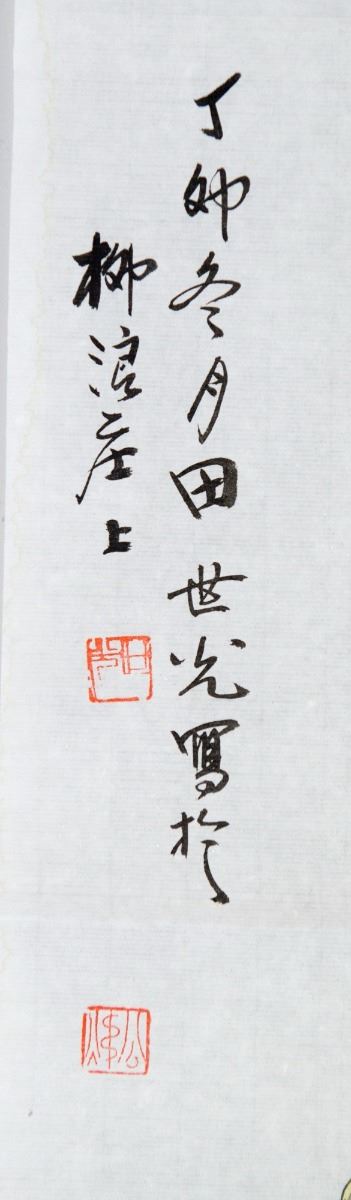 丁卯冬月田世光寫於
柳浪庄上